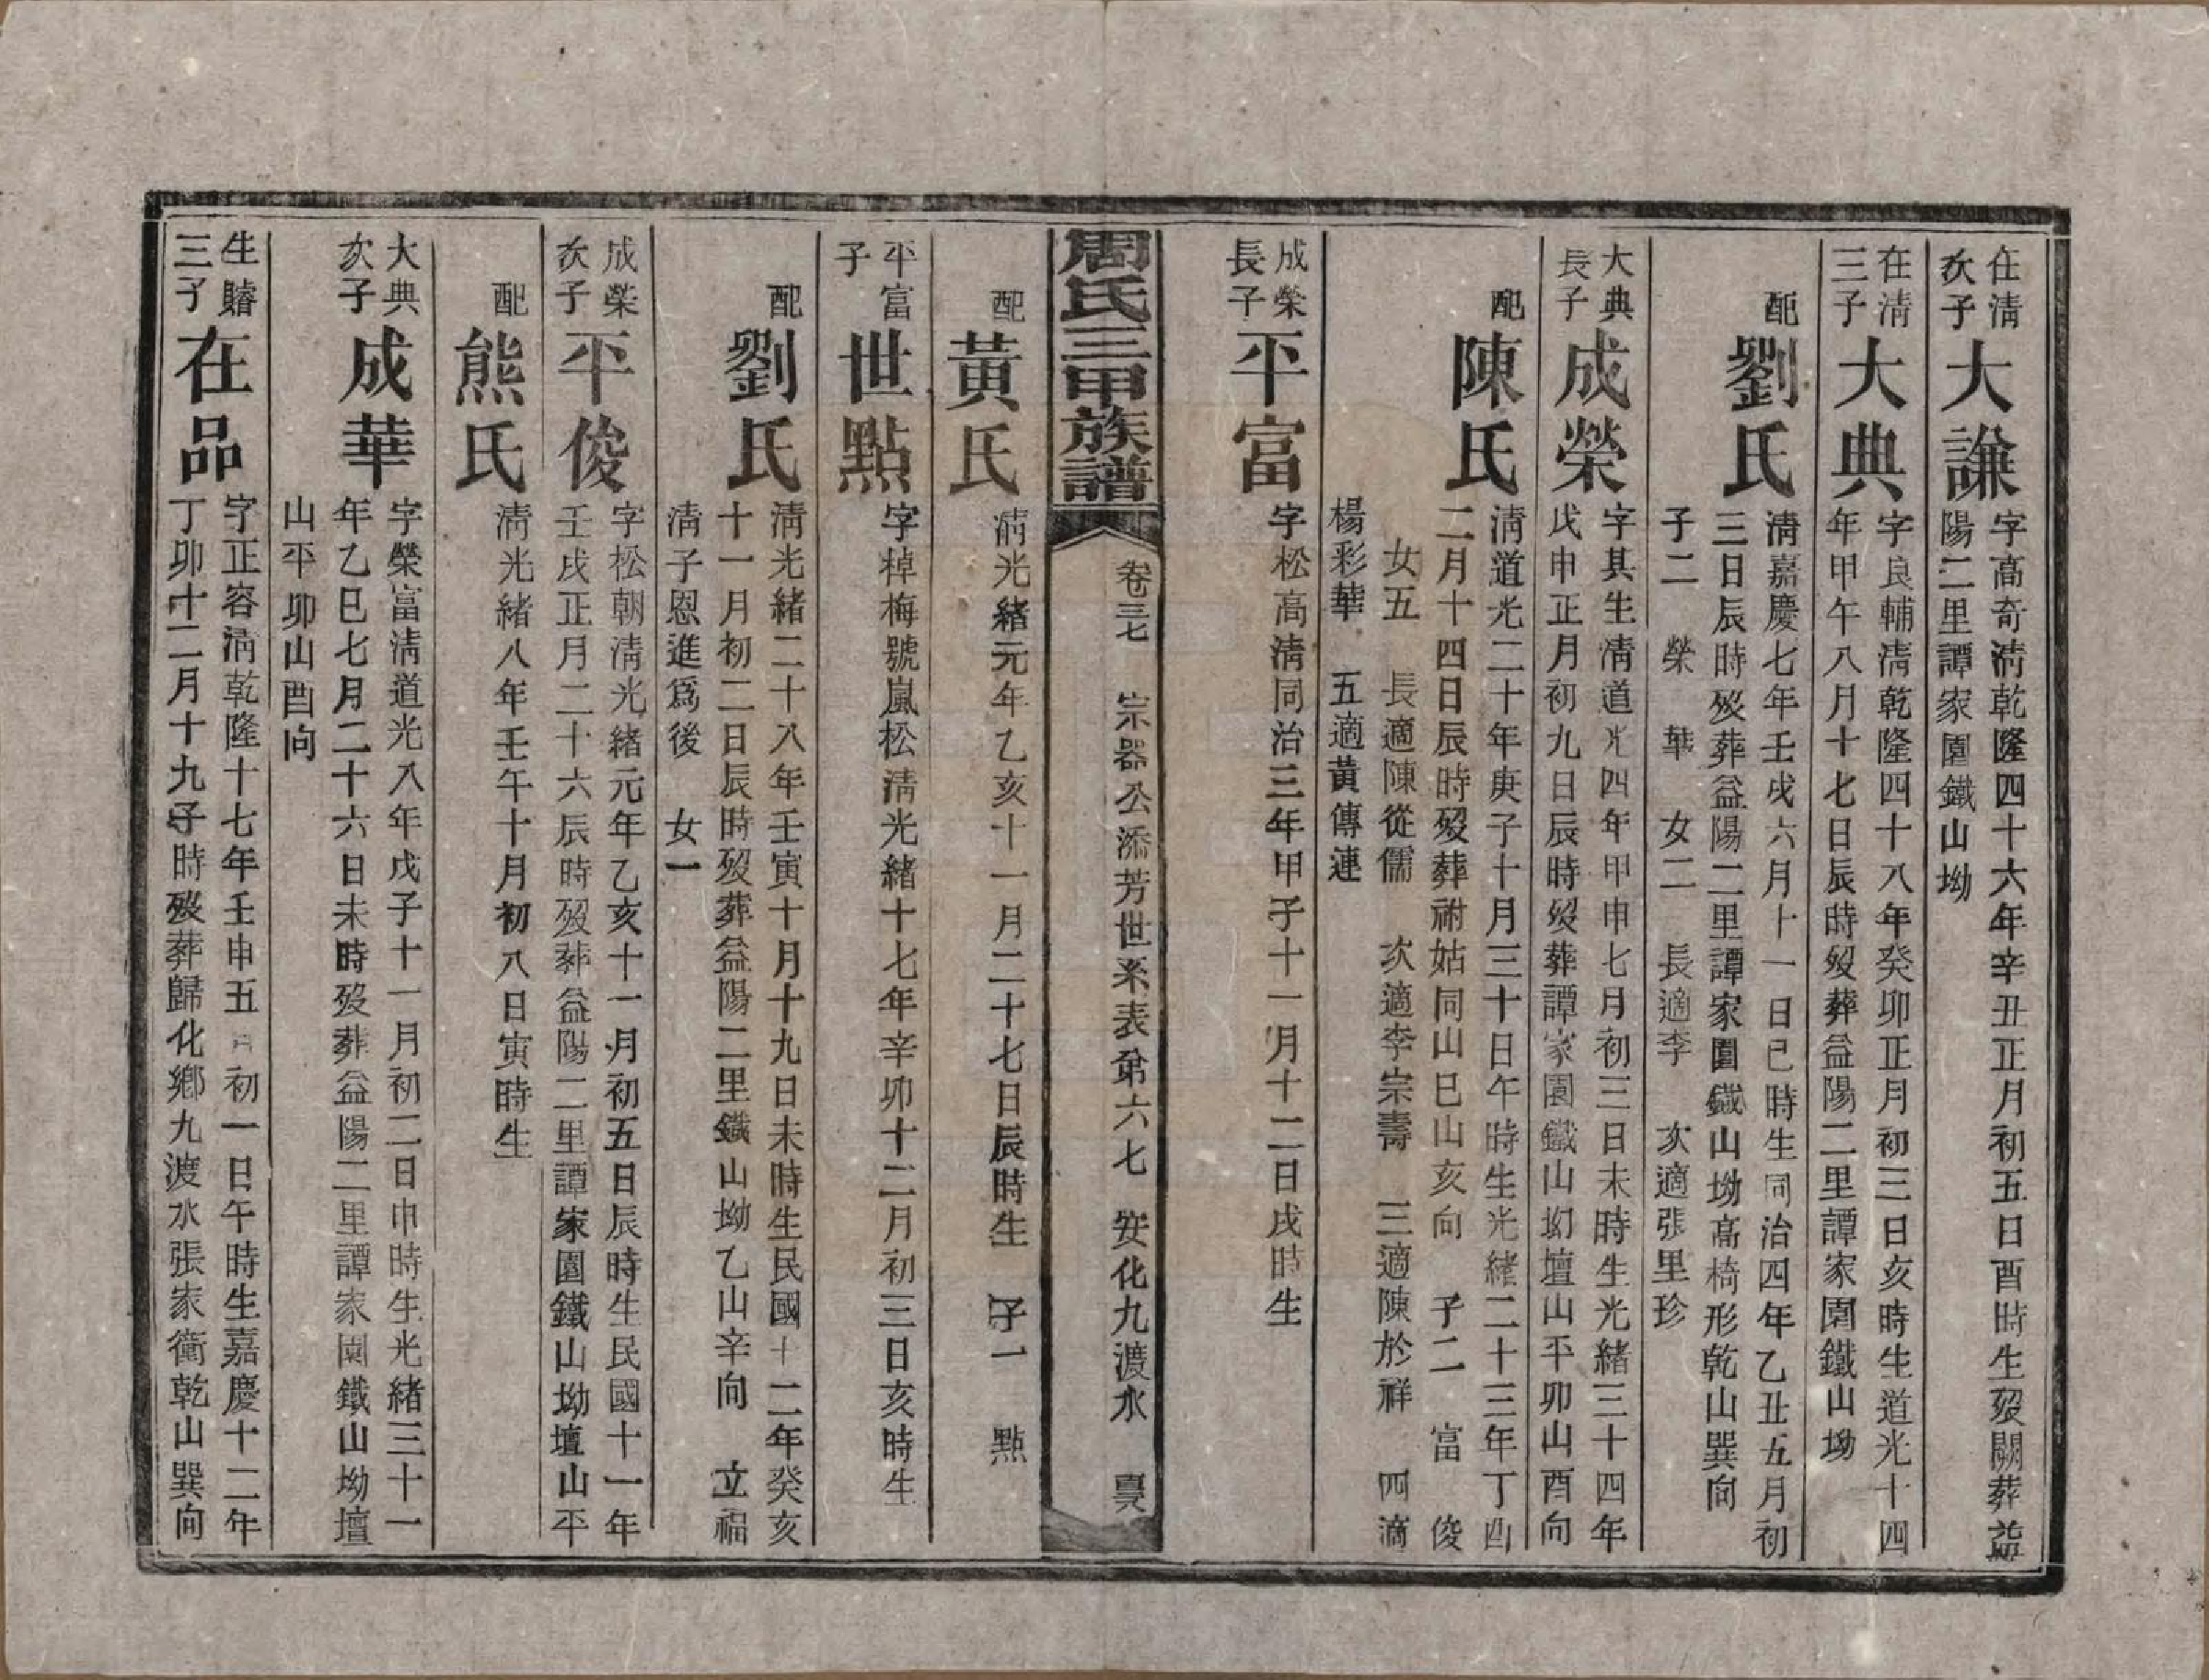 在淸
次子
大謙
字高奇淸乾隆四十六年辛丑正月初五日酉時生歿闕葬益
陽二里譚家園鐵山坳
在淸
三子
大典
字良輔淸乾隆四十八年癸卯正月初三日亥時生道光十四
年甲午八月十七日辰時歿葬益陽二里譚家園鐵山坳
配
劉氏
淸嘉慶七年壬戌六月十一日巳時生同治四年乙丑五月初
三日辰時歿葬益陽二里譚家園鐵山坳高椅形乾山巽向
子二 榮 華 女二 長適李 次適張里珍
大典
長子
成榮
字其生淸道光四年甲申七月初三日未時生光緒三十四年
戊申正月初九日辰時歿葬譚家園鐵山坳壇山平卯山酉向
配
陳氏
淸道光二十年庚子十月三十日午時生光緒二十三年丁酉
二月十四日辰時歿葬祔姑同山巳山亥向 子二 富 俊
女五 長適陳從儒 次適李宗壽 三適陳於祥 四適
楊彩華 五適黃傳連
成榮
長子
平富
字松高淸同治三年甲子十一月十二日戌時生
周氏三甲族譜
卷三七 宗器公添芳世系表弟六七 安化九渡水
配
黃氏
淸光緒元年乙亥十一月二十七日辰時生 子一 點
平富
子
世點
字棹梅號嵐松淸光緒十七年辛卯十二月初三日亥時生
配
劉氏
淸光緒二十八年壬寅十月十九日未時生民國十二年癸亥
十一月初二日辰時歿葬益陽二里鐵山坳乙山辛向 立福
淸子恩進爲後 女一
成榮
次子
平俊
字松朝淸光緒元年乙亥十一月初五日辰時生民國十一年
壬戌正月二十六辰時歿葬益陽二里譚家園鐵山坳壇山平
配
熊氏
淸光緒八年壬午十月初八日寅時生
大典
次子
成華
字榮富淸道光八年戊子十一月初二日申時生光緒三十一
年乙巳七月二十六日未時歿葬益陽二里譚家園鐵山坳壇
山平卯山酉向
生贍
三子
在品
字正容淸乾隆十七年壬申五月初一日午時生嘉慶十二年
丁卯十二月十九子時歿葬歸化鄉九渡水張家衝乾山巽向